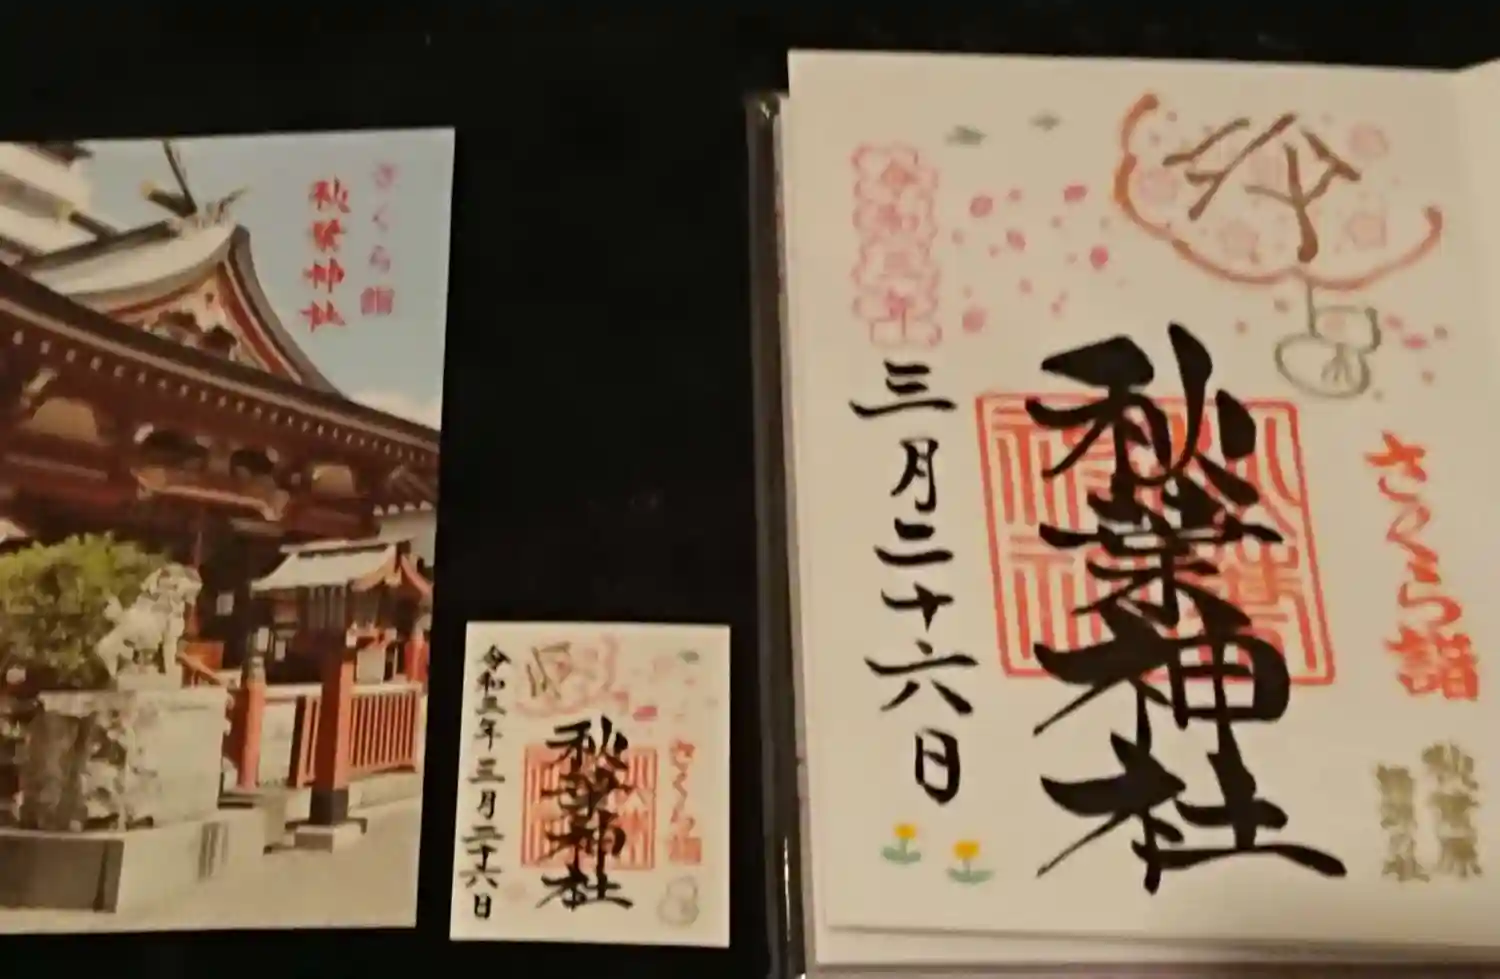 さくら詣
秋葉神社
さくら詣
秋葉神社
令和三年三月二十六日
さくら詣
秋葉神社
令和三年
三月二十六日
秋葉原